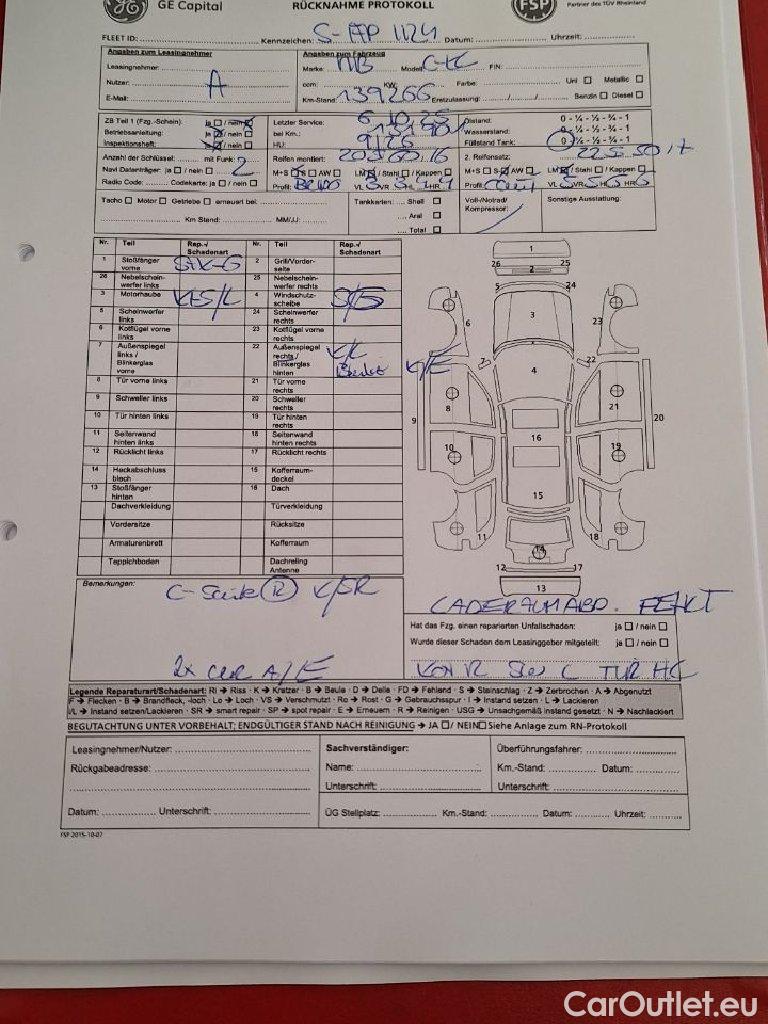 GE Capital RÜCKNAHME PROTOKOLL FSP Partner des TÜV Rheinland
FLEET ID: Kennzeichen: S-AP 1124 Datum: Uhrzeit:
Angaben zum Leasingnehmer
Leasingnehmer:
Nutzer: A
E-Mail:
Angaben zum Fahrzeug
Marke: MB Modell: FIN:
ccm: KW: Farbe: Uni Metallic
Km-Stand: 139266 Erstzulassung: / / Benzin Diesel
ZB Teil 1 (Fzg.-Schein): ja / nein
Betriebsanleitung: ja / nein
Inspektionsheft: ja / nein
Anzahl der Schlüssel: mit Funk: 2
Navi Datenträger: ja / nein
Radio Code: Codekarte: ja / nein
Letzter Service: 6.10.25
bei Km.: 131901
HU: 9/26
Reifen montiert: 205 60 16
M+S S AW LM / Stahl / Kappen
Profil: VL VR HL HR
Ölstand: 0 - ¼ - ½ - ¾ - 1
Wasserstand: 0 - ¼ - ½ - ¾ - 1
Füllstand Tank: 0 - ¼ - ½ - ¾ - 1
2. Reifensatz: 225 50 17
M+S S AW LM / Stahl / Kappen
Profil: VL VR HL HR
Tacho Motor Getriebe erneuert bei:
Km Stand: MM/JJ:
Tankkarten: Shell
Aral
Total
Voll-/Notrad/
Kompressor:
Sonstige Ausstattung:
Nr. Teil Rep.-/ Schadenart Nr. Teil Rep.-/ Schadenart
1 Stoßfänger vorne 2 Grill/Vorderseite
26 Nebelscheinwerfer links 25 Nebelscheinwerfer rechts
3 Motorhaube K+S/L 4 Windschutzscheibe S/E
5 Scheinwerfer links 24 Scheinwerfer rechts
6 Kotflügel vorne links 23 Kotflügel vorne rechts
7 Außenspiegel links / Blinkerglas vorne 22 Außenspiegel rechts / Blinkerglas hinten K/L K/E
8 Tür vorne links 21 Tür vorne rechts
9 Schweller links 20 Schweller rechts
10 Tür hinten links 19 Tür hinten rechts
11 Seitenwand hinten links 18 Seitenwand hinten rechts
12 Rücklicht links 17 Rücklicht rechts
14 Heckabschlussblech 15 Kofferraumdeckel
13 Stoßfänger hinten 16 Dach
Dachverkleidung Türverkleidung
Vordersitze Rücksitze
Armaturenbrett Kofferraum
Teppichboden Dachreling Antenne
1
26 25
2
5 24
3
6 23
7 22
4
8 21
9 20
16
10 19
15
11 18
14
12 17
13
Bemerkungen:
C-Säule R K/SR
2x A/E
LADERAUMABD. FEHLT
Hat das Fzg. einen reparierten Unfallschaden: ja / nein
Wurde dieser Schaden dem Leasinggeber mitgeteilt: ja / nein
TÜR HL
Legende Reparaturart/Schadenart: RI → Riss · K → Kratzer · B → Beule · D → Delle · FD → Fehlend · S → Steinschlag · Z → Zerbrochen · A → Abgenutzt
F → Flecken · B → Brandfleck, -loch · Lo → Loch · VS → Verschmutzt · Ro → Rost · G → Gebrauchsspur · I → Instand setzen · L → Lackieren
I/L → Instand setzen/Lackieren · SR → smart repair · SP → spot repair · E → Erneuern · R → Reinigen · USG → Unsachgemäß Instand gesetzt · N → Nachlackiert
BEGUTACHTUNG UNTER VORBEHALT; ENDGÜLTIGER STAND NACH REINIGUNG → JA / NEIN Siehe Anlage zum RN-Protokoll
Leasingnehmer/Nutzer:
Rückgabeadresse:
Datum: Unterschrift:
Sachverständiger:
Name:
Unterschrift:
Überführungsfahrer:
Km.-Stand: Datum:
Unterschrift:
ÜG Stellplatz: Km.-Stand: Datum: Uhrzeit:
FSP 2015-10-07
CarOutlet.eu